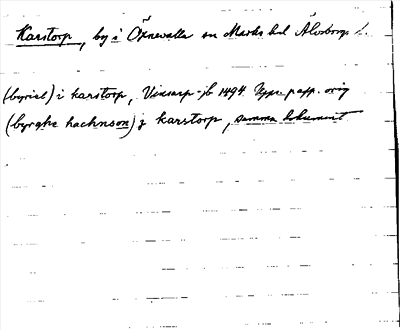 Karstorp, by i Öxnevalla sn Marks hd Älvsborgs l.
(byriel) i karstorp, Vinsarp-jb 1494 Uppr papp. orig
(byrghe hachnson) j karstorp, samma dokument